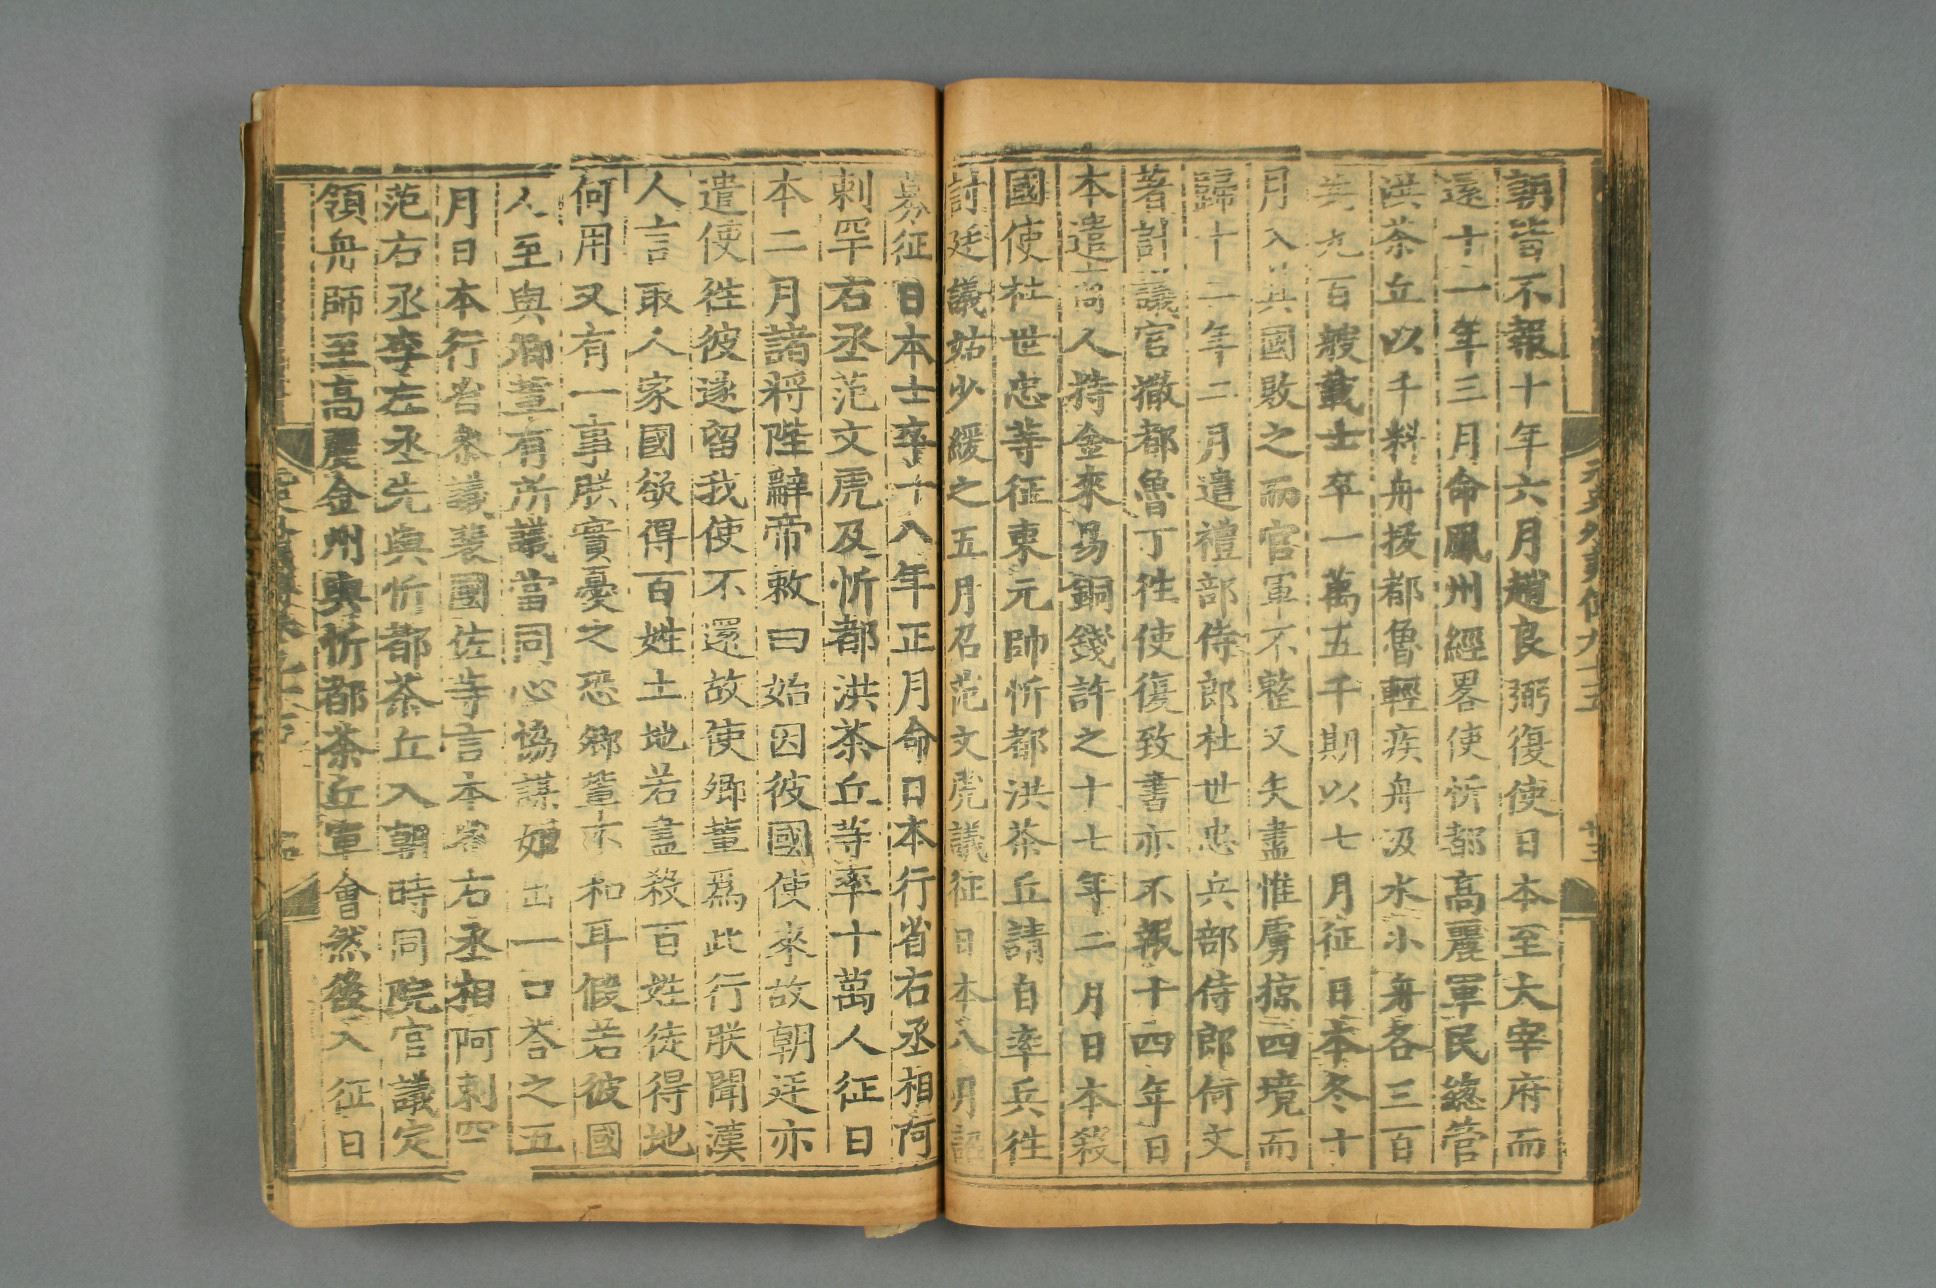 元史外夷傳九十五
廿三
詔皆不報十年六月趙良弼復使日本至大宰府而
還十一年三月命鳳州經畧使忻都高麗軍民總管
洪茶丘以千料舟拔都魯輕疾舟汲水小舟各三百
共九百艘載士卒一萬五千期以七月征日本冬十
月入其國敗之而官軍不整又矢盡惟虜掠四境而
歸十二年二月遣禮部侍郎杜世忠兵部侍郎何文
著計議官撒都魯丁往使復致書亦不報十四年日
本遣商人持金來易銅錢許之十七年二月日本殺
國使杜世忠等征東元帥忻都洪茶丘請自率兵往
討廷議姑少緩之五月召范文虎議征日本八月詔
募征日本士卒十八年正月命日本行省右丞相阿
剌罕右丞范文虎及忻都洪茶丘等率十萬人征日
本二月諸將陛辭帝敕曰始因彼國使來故朝廷亦
遣使徃彼遂留我使不還故使卿輩爲此行朕聞漢
人言取人家國欲得百姓土地若盡殺百姓徒得地
何用又有一事朕實憂之恐卿輩不和耳假若彼國
人至與卿輩有所議當同心協謀如出一口荅之五
月日本行省參議裴國佐等言本省右丞相阿剌罕
范右丞李左丞先與忻都茶丘入朝時同院官議定
領舟師至高麗金州與忻都茶丘軍會然後入征日